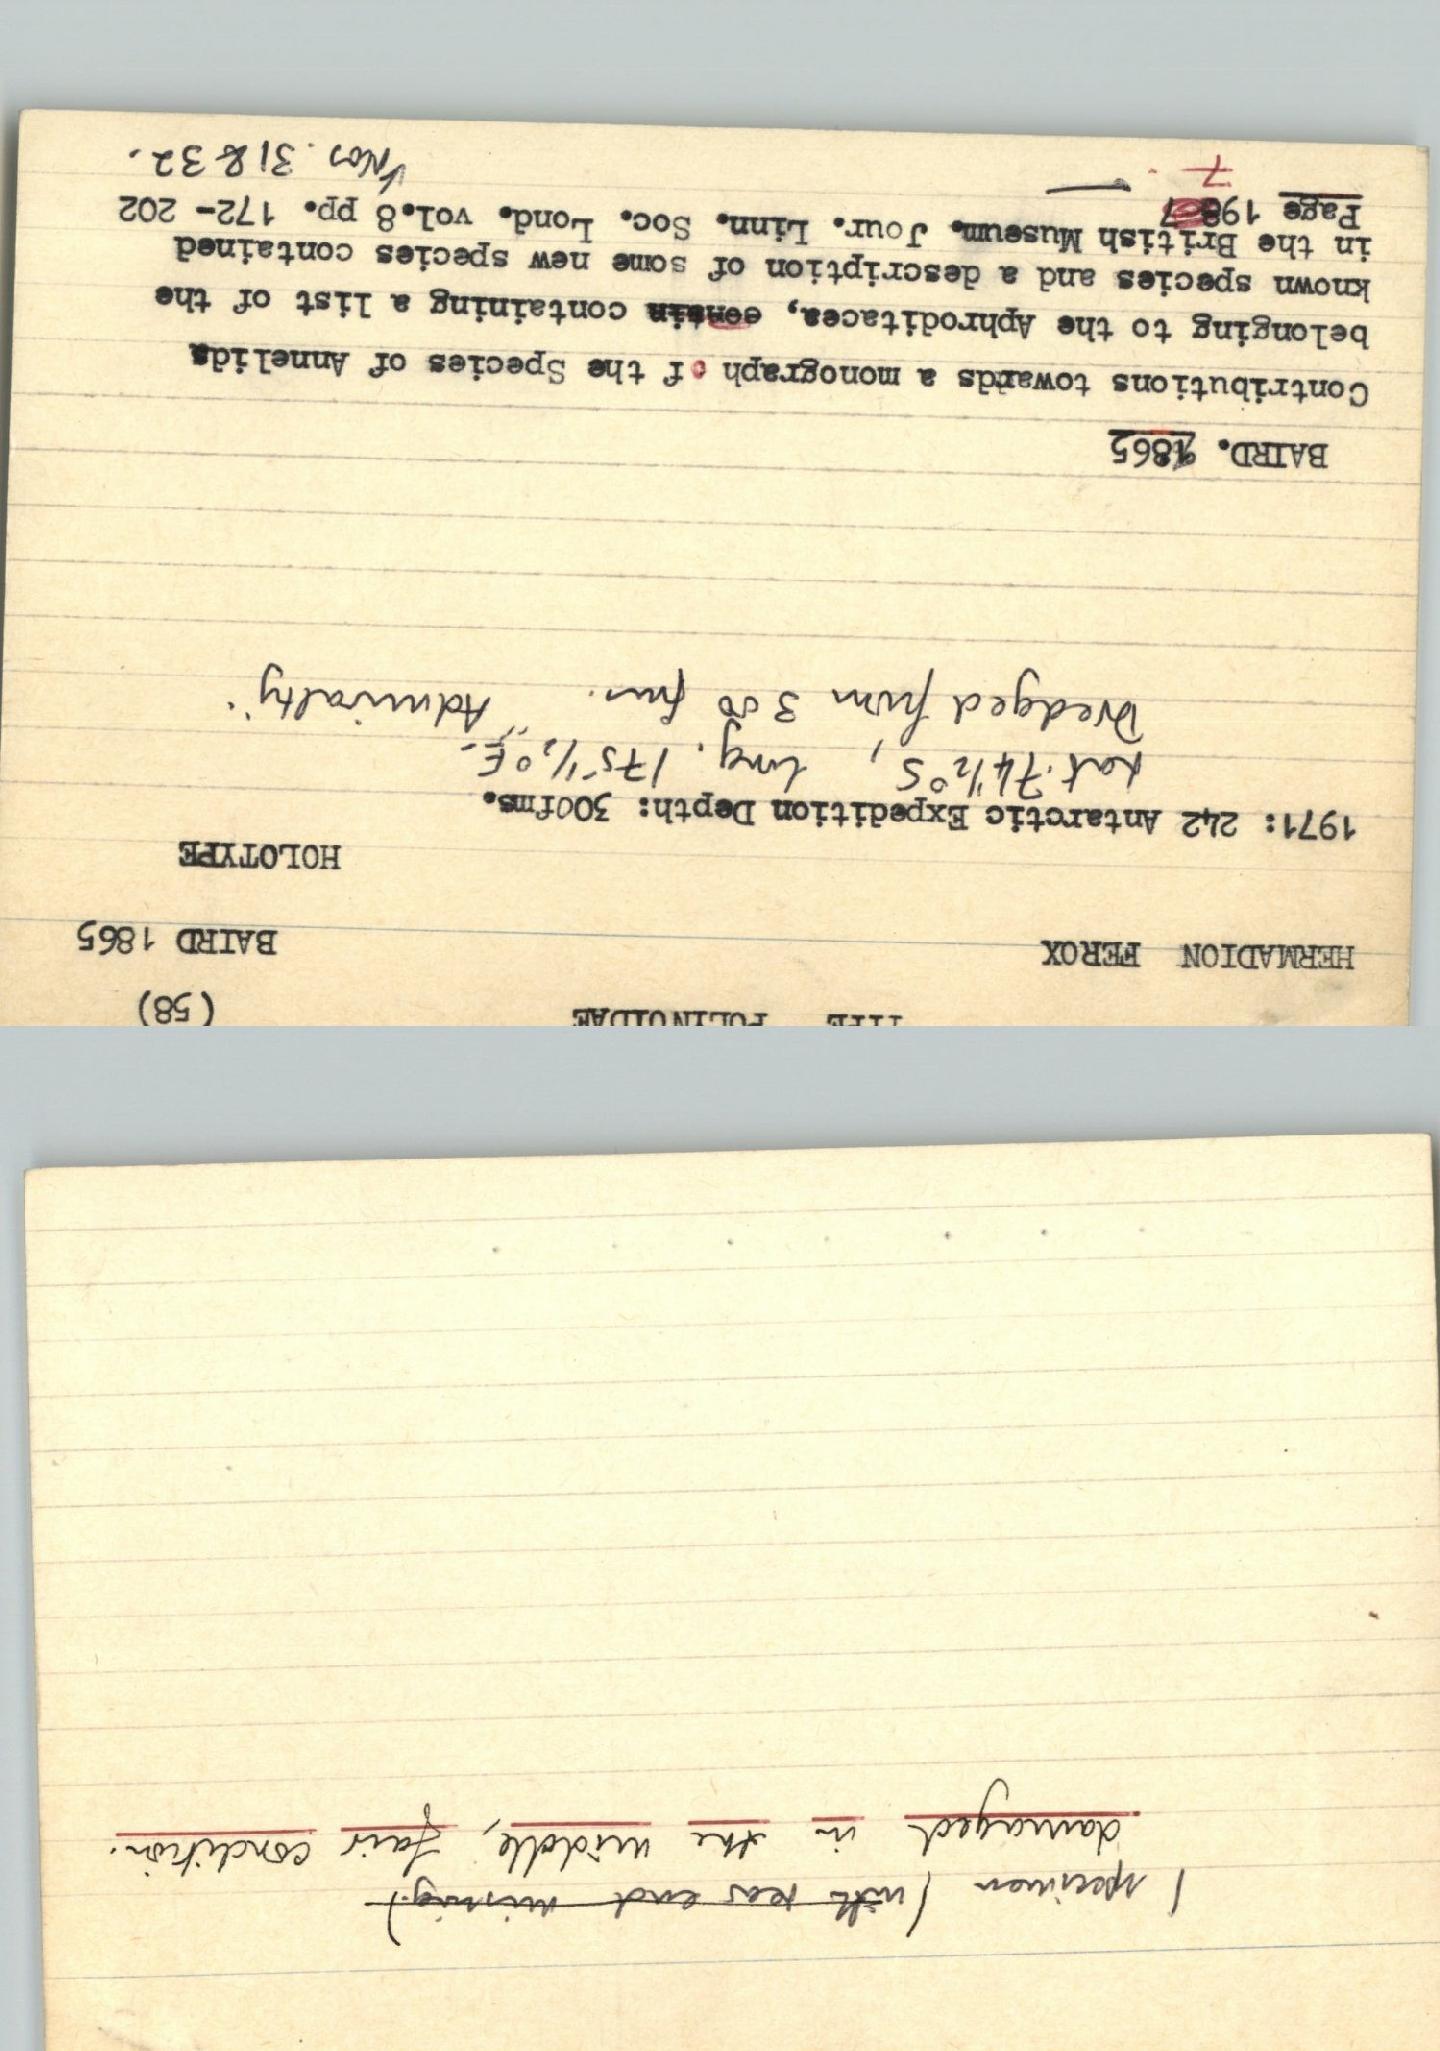 TYPE POLYNOIDAE (58)
HERMADION FEROX BAIRD 1865
HOLOTYPE
1971: 242 Antarctic Expedition Depth: 300fms.
Lat. 74 1/2° S, Long. 175 1/2° E.
Dredged from 300 fms. "Admiralty".
BAIRD. 1865
Contributions towards a monograph of the Species of Annelids
belonging to the Aphroditacea, contain containing a list of the
known species and a description of some new species contained
in the British Museum. Jour. Linn. Soc. Lond. vol.8 pp. 172- 202
Page 1987 Nos. 31 & 32.
7
1 specimen (with rear end missing.)
damaged in the middle, fair condition.